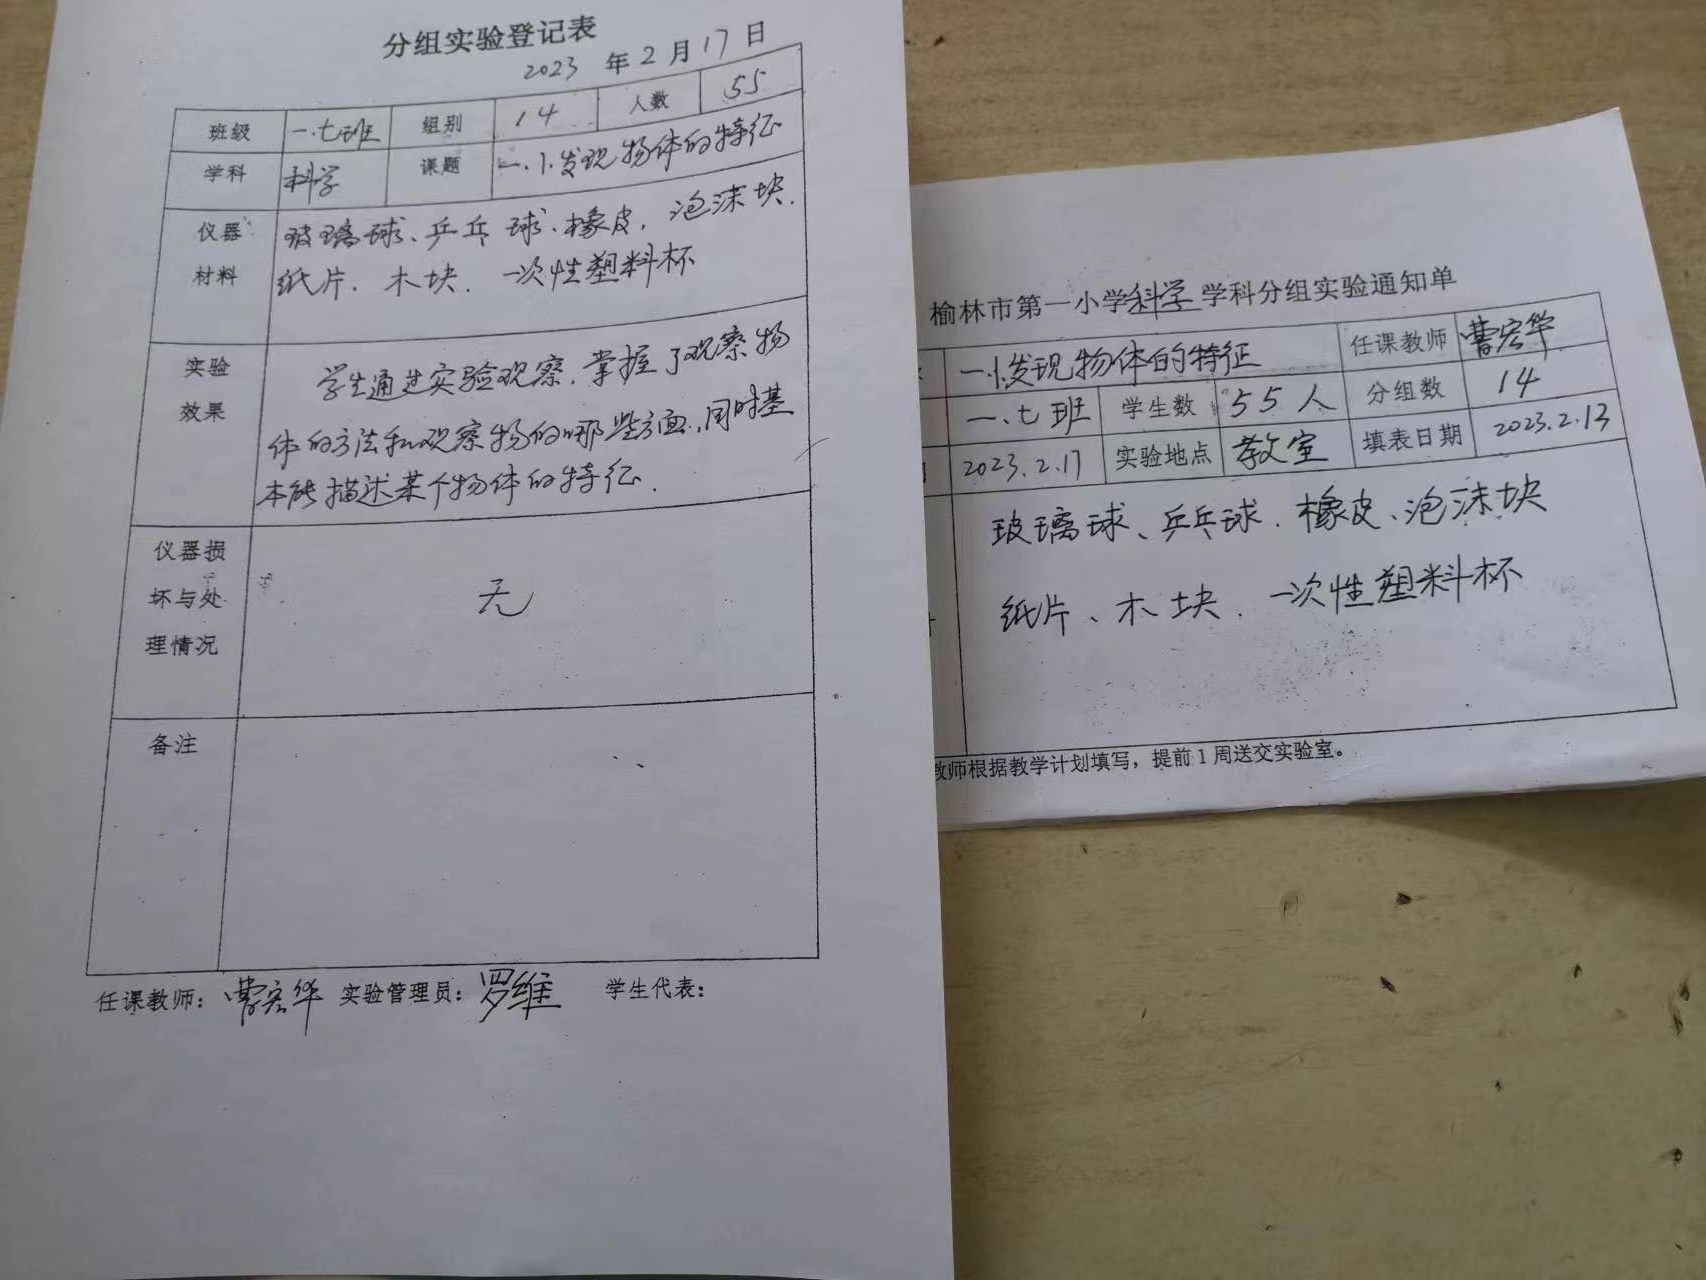 分组实验登记表
2023 年 2 月 17 日
班级 一.七班 组别 14 人数 55
学科 科学 课题 一.1.发现物体的特征
仪器 玻璃球、乒乓球、橡皮、泡沫块.
材料 纸片、木块、一次性塑料杯
实验 学生通过实验观察,掌握了观察物
效果 体的方法和观察物的哪些方面,同时基
本能描述某个物体的特征.
仪器损
坏与处 无
理情况
备注
任课教师: 曹宏华 实验管理员: 罗维 学生代表:
榆林市第一小学科学学科分组实验通知单
一.1.发现物体的特征 任课教师 曹宏华
一.七班 学生数 55人 分组数 14
2023.2.17 实验地点 教室 填表日期 2023.2.13
玻璃球、乒乓球、橡皮、泡沫块
纸片、木块、一次性塑料杯
教师根据教学计划填写,提前1周送交实验室。